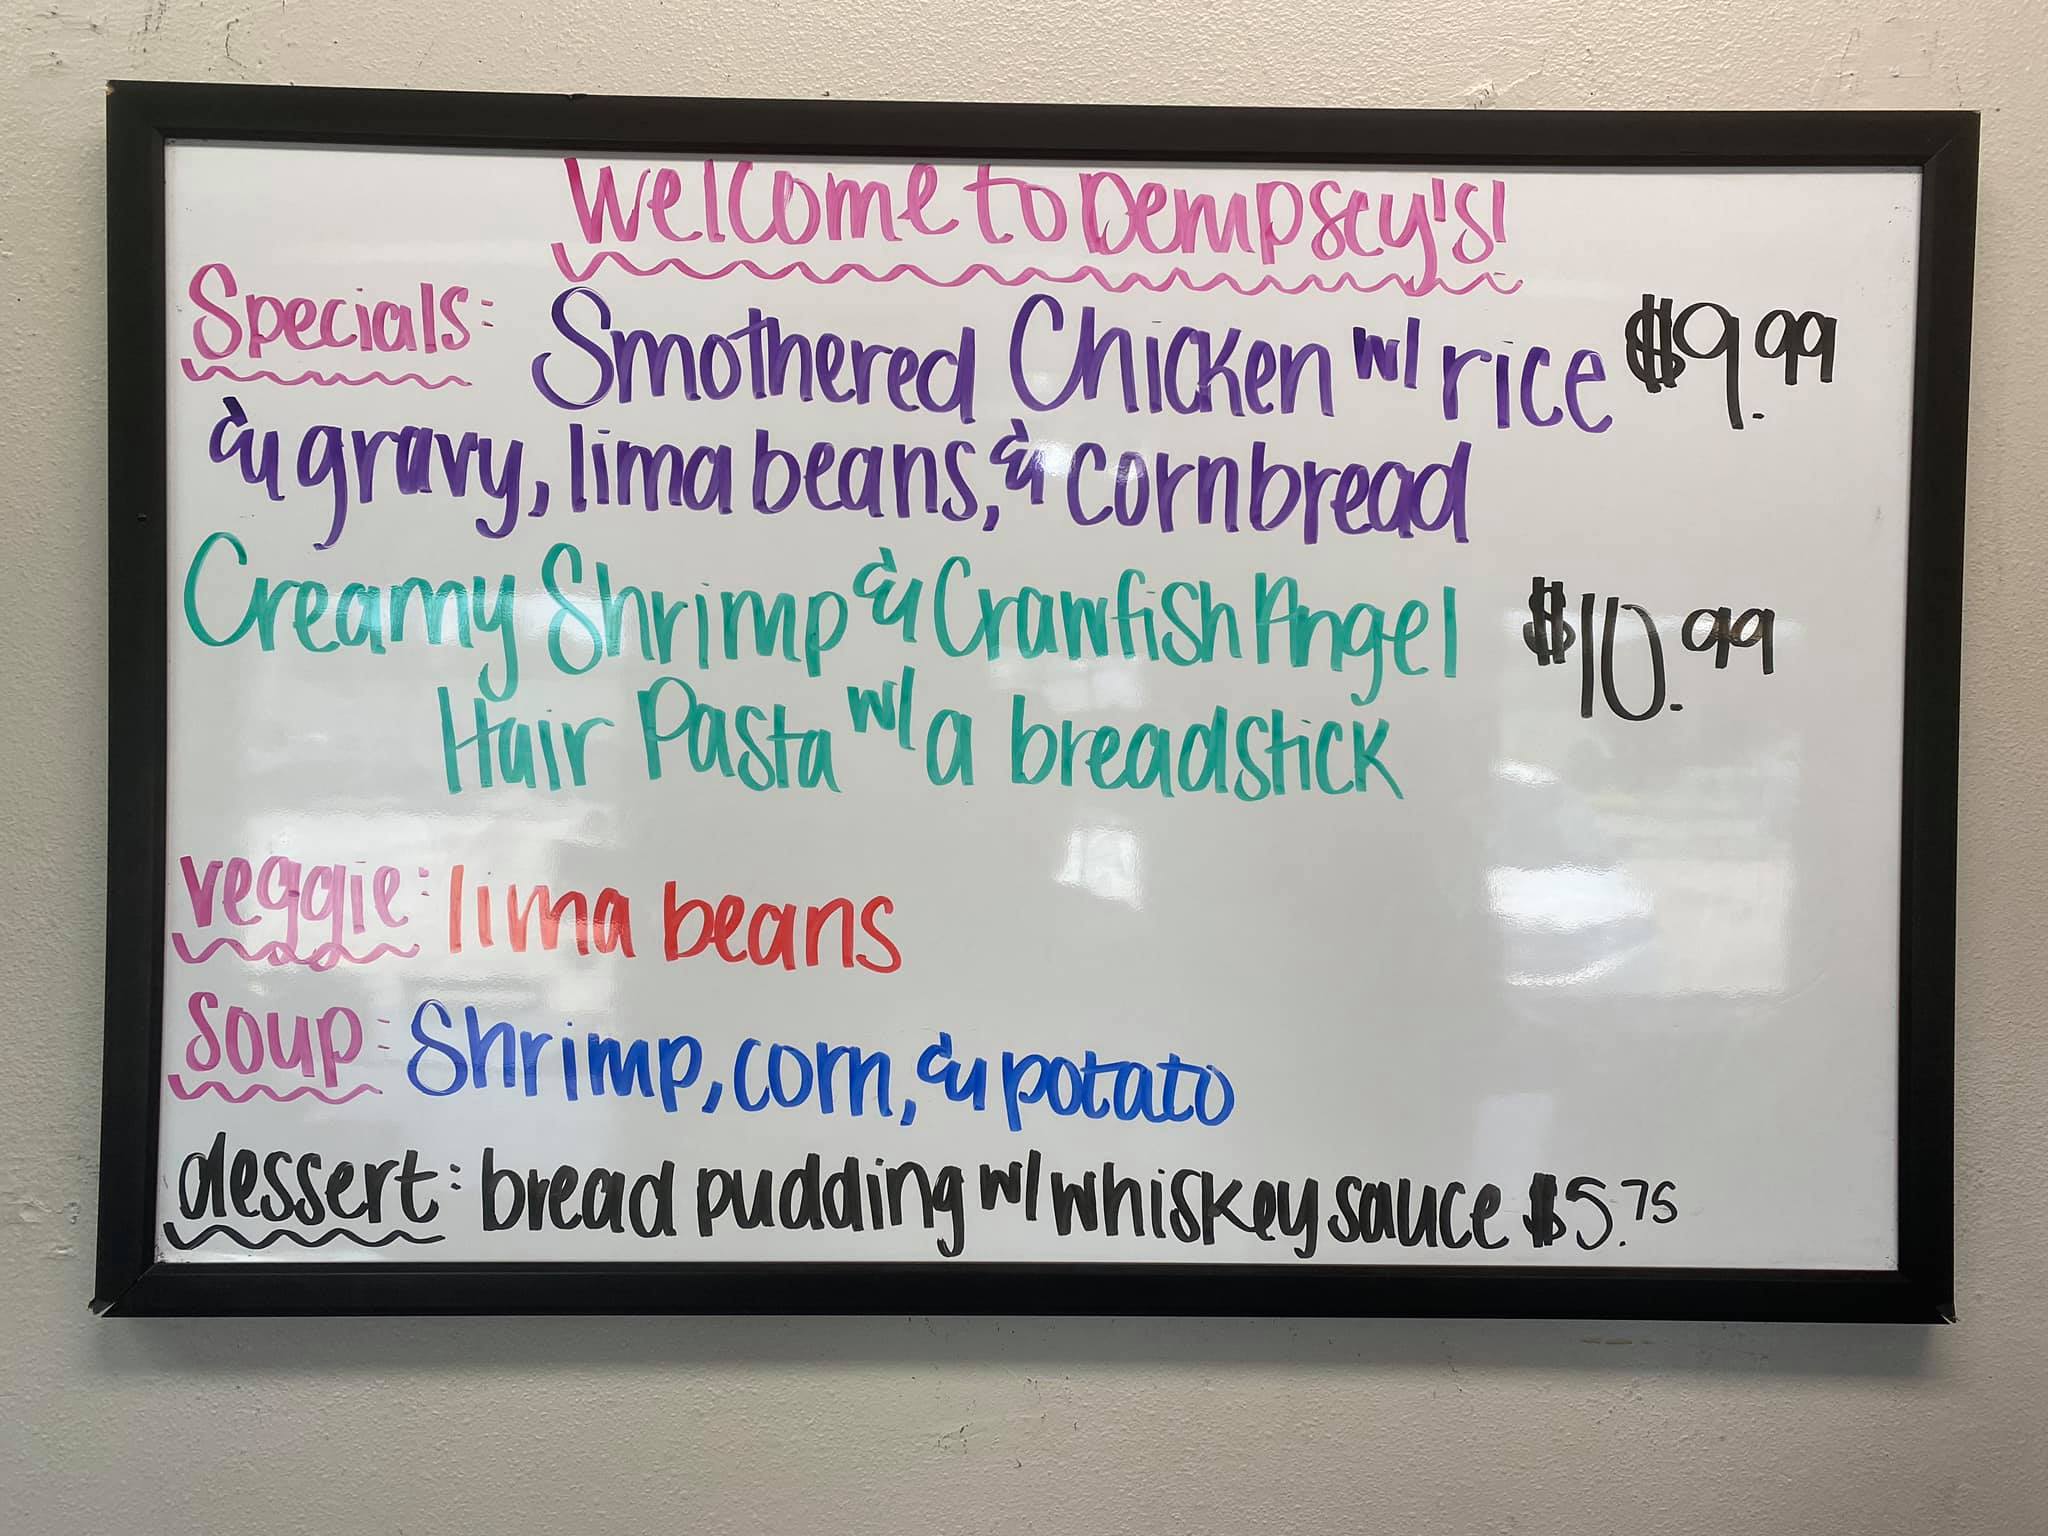 Welcome to Dempsey's!
Specials: Smothered Chicken w/ rice $9.99
& gravy, lima beans, & cornbread
Creamy Shrimp & Crawfish Angel $10.99
Hair Pasta w/ a breadstick
veggie: lima beans
Soup: Shrimp, corn, & potato
dessert: bread pudding w/ whiskey sauce $5.75